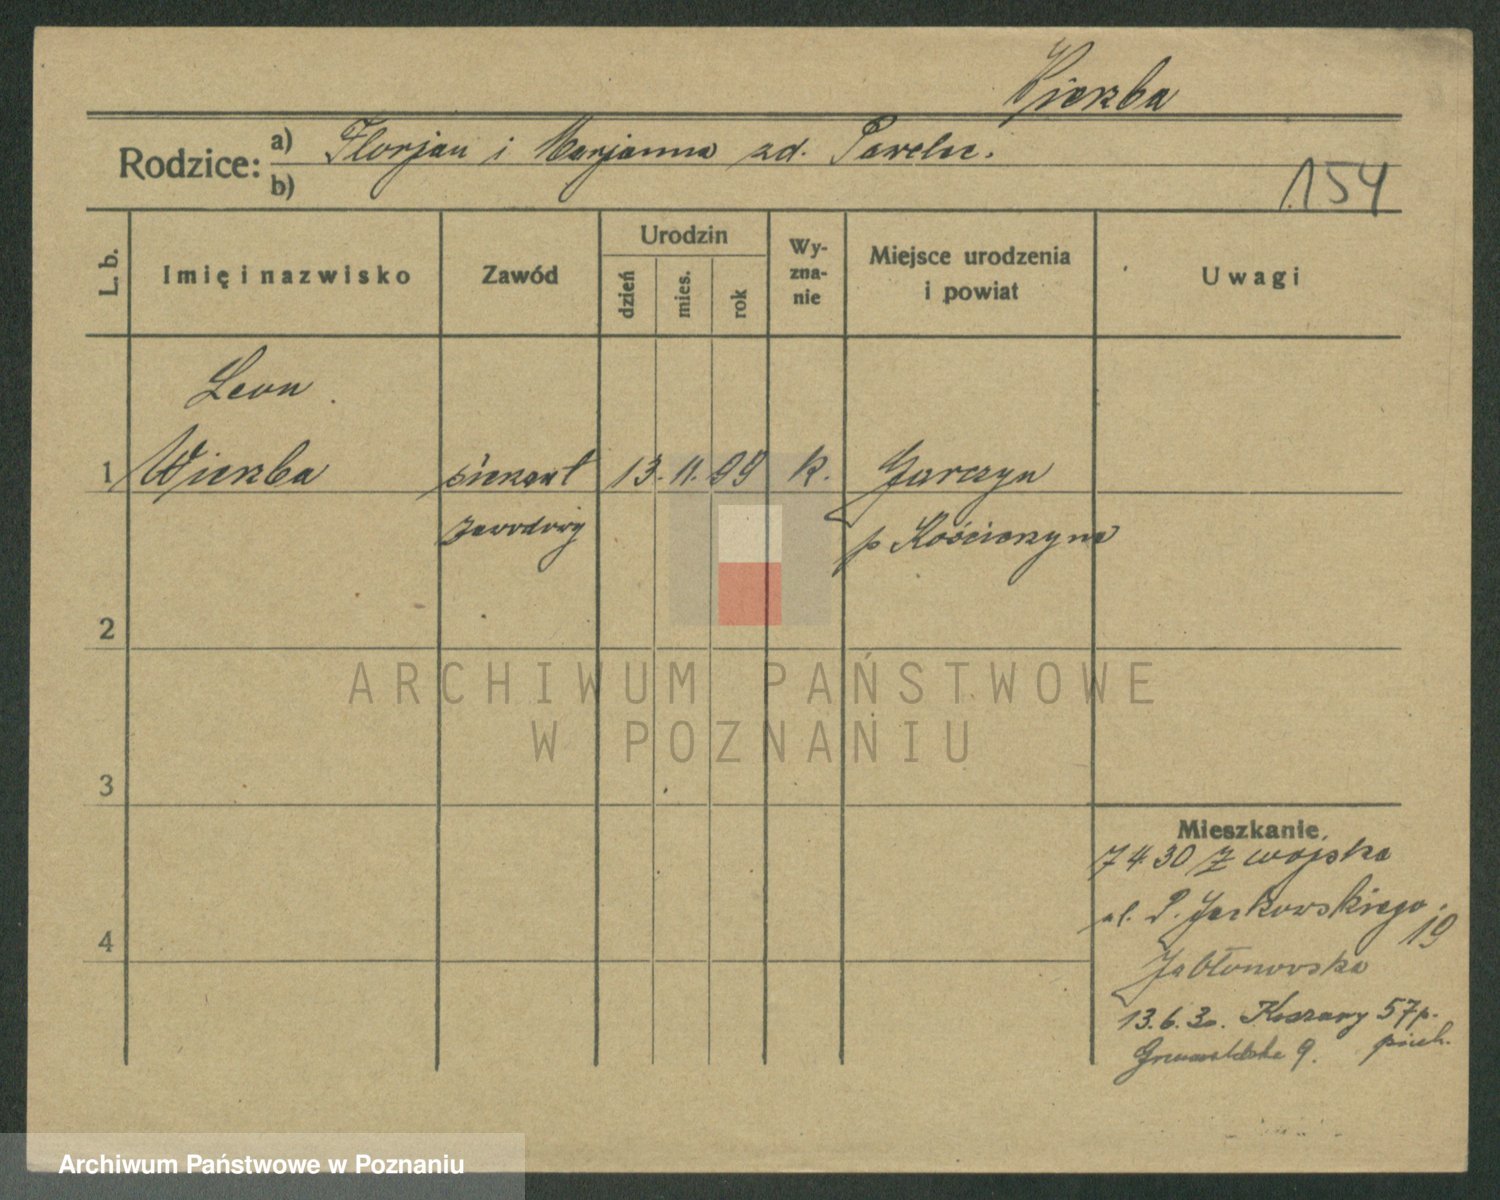 Wierzba
Rodzice: a) Florjan i Marjanna zd. Pawelec.
b)
154
L. b.
Imię i nazwisko
Zawód
Urodzin
dzień
mies.
rok
Wy-
zna-
nie
Miejsce urodzenia
i powiat
Uwagi
Leon
1 Wierzba sierżant 13. 11. 99 k. Garczyn
zawodowy p Kościerzyna
2
ARCHIWUM PAŃSTWOWE
W POZNANIU
3
Mieszkanie
7 4 30 z wojska
ul. P. Jackowskiego 19
4
Jabłonowska
13.6.30. Koszary 57 p. piech.
Grunwaldzka 9.
Archiwum Państwowe w Poznaniu